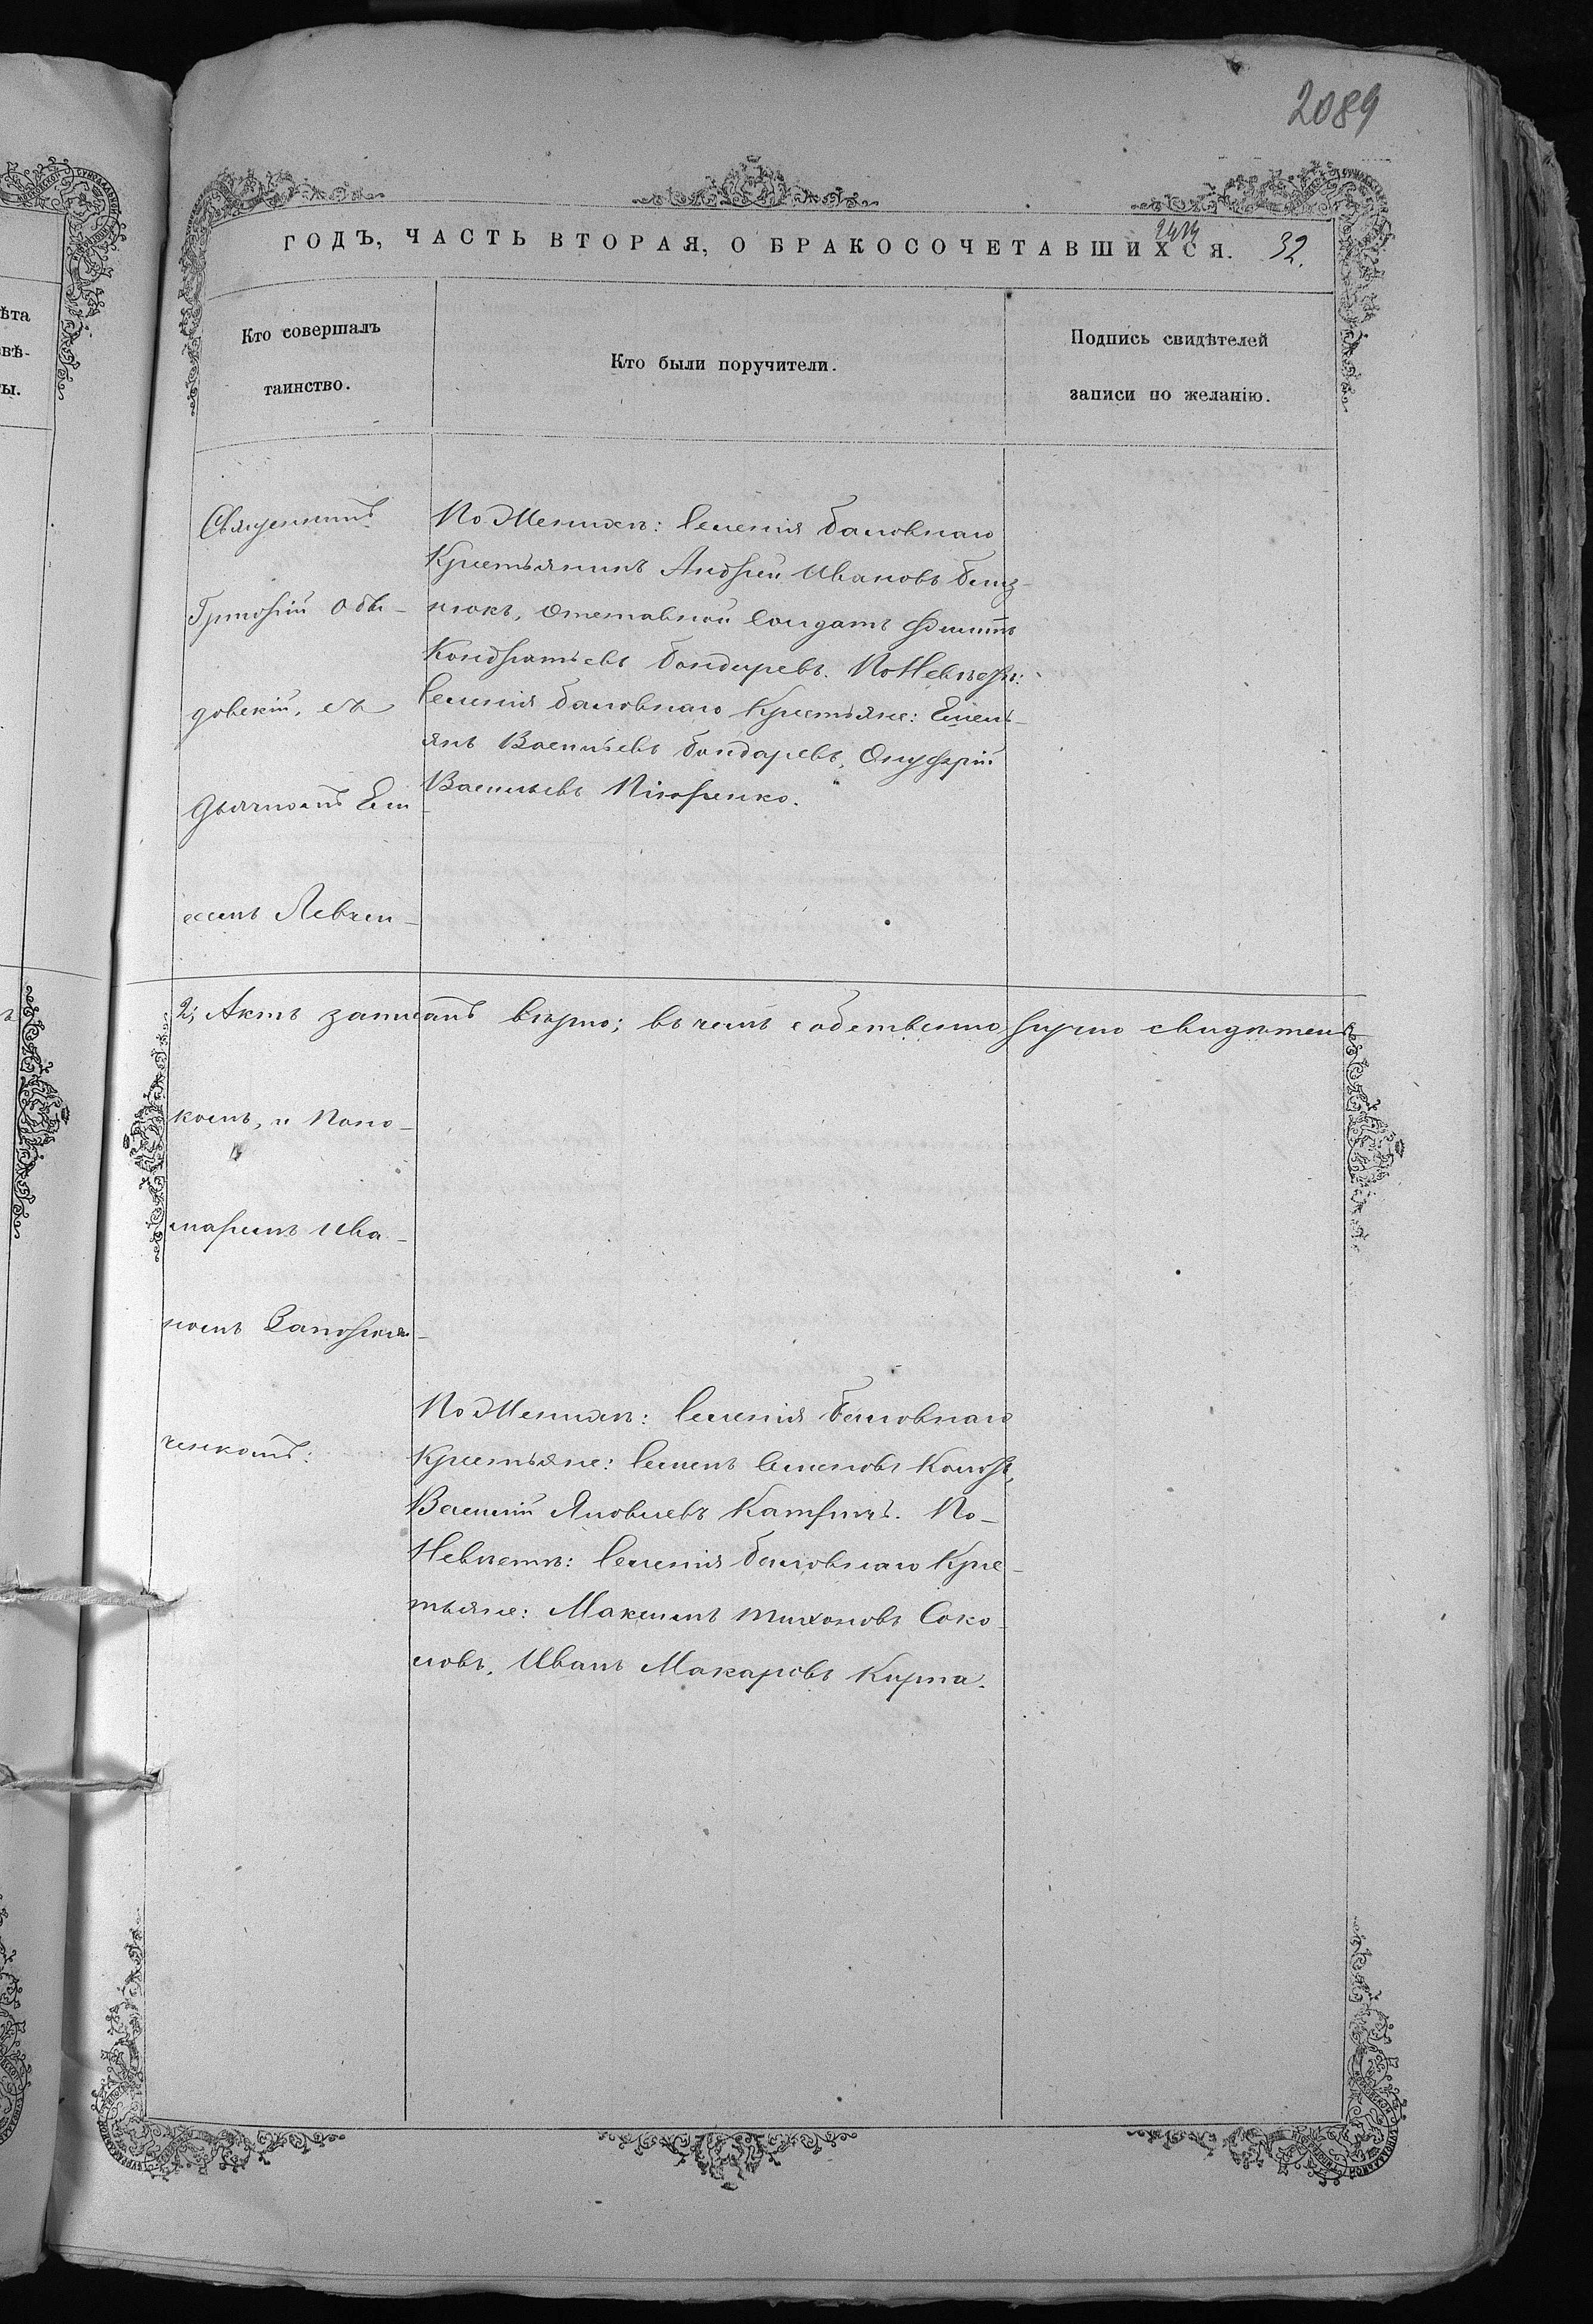 2089
ГОДЪ, ЧАСТЬ ВТОРАЯ, О БРАКОСОЧЕТАВШИХСЯ. 32.
Кто совершалъ
таинство.
Кто были поручители.
Подпись свидѣтелей
записи по желанію.
Священникъ
Григорій Обы-
довскій, съ
Дьячкомъ
Левчен-
По Женихѣ: Селенія Баловнаго
Крестьянинъ Андрей Ивановъ
отставной Солдатъ Филиппъ
Кондратьевъ Бондаревъ. По Невѣстѣ:
Селенія Баловнаго Крестьяне: Емель-
янъ Васильевъ Бондаревъ, Онуфрій
Васильевъ
2, Актъ записанъ вѣрно; въ чемъ собственно ручно свидѣтель-
комъ, и Поно-
маремъ Ива-
номъ
ченкомъ:
По Женихѣ: Селенія Баловнаго
Крестьяне: Семенъ Семеновъ
Василій Яковлевъ По-
Невѣстѣ: Селенія Баловнаго Крес-
тьяне: Максимъ Тихоновъ Соко-
ловъ, Иванъ Макаровъ Кирпа.